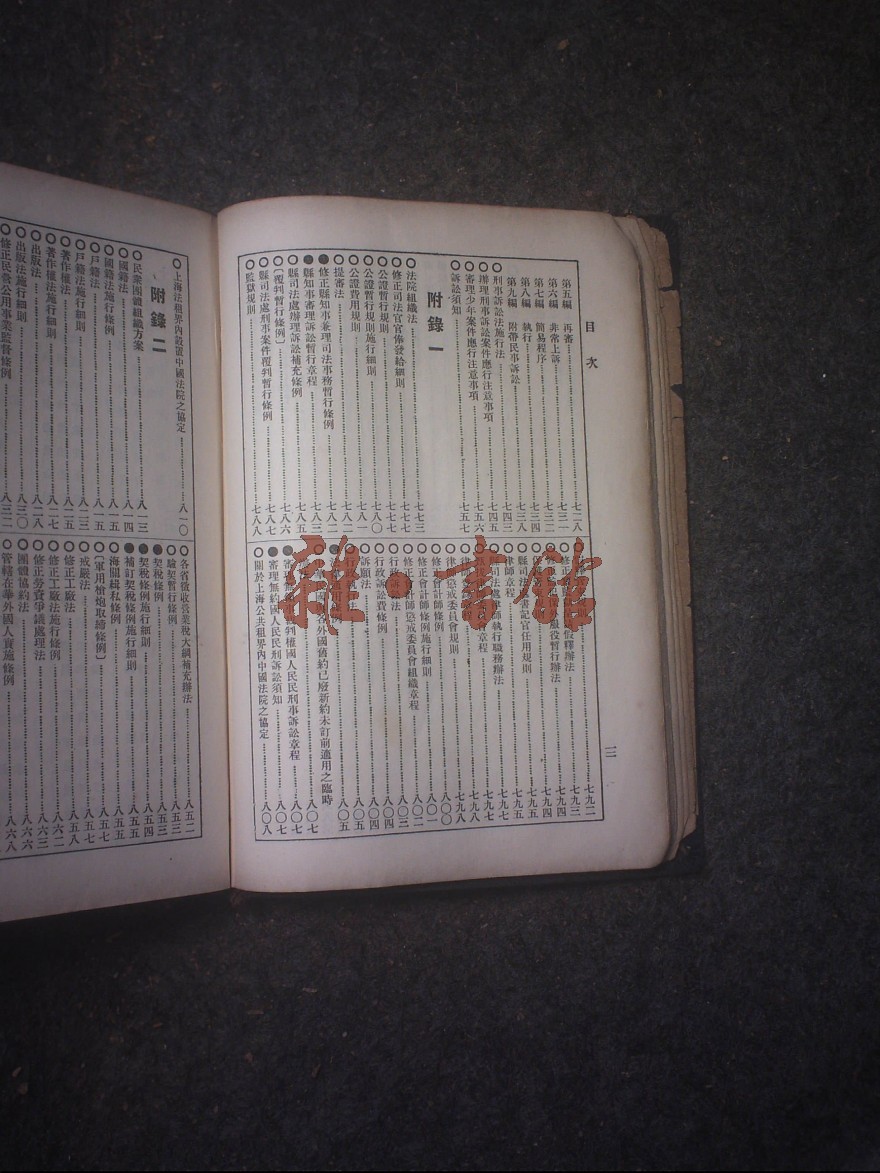 目次
一二
第五編 再審 七一八
第六編 非常上訴 七三一
第七編 簡易程序 七三二
第八編 執行 七三四
第九編 附帶民事訴訟 七四三
刑事訴訟法施行法 七四五
辦理刑事訴訟案件應行注意事項 七五六
審理少年案件應行注意事項
訴訟須知 七五七
附錄一
法院組織法 七七三
修正司法官官俸發給細則 七七七
公證暫行規則 七七七
公證暫行規則施行細則 七八〇
公證費用規則 七八一
提審法 七八二
修正縣知事兼理司法事務暫行條例 七八二
縣知事審理訴訟暫行章程 七八三
縣司法處辦理訴訟補充條例 七八五
〔覆判暫行條例〕 七八六
縣司法處刑事案件覆判暫行條例 七八七
監獄規則 七八八
假釋辦法 七九二
服役暫行辦法 七九四
縣司法 書記官任用規則 七九五
律師章程 七九五
縣司法處律師執行職務辦法 七九七
章程 七九七
律師 七九八
律師懲戒委員會規則 七九九
修正會計師條例 八〇〇
修正會計師條例施行細則 八〇一
修正會計師懲戒委員會組織章程 八〇三
行政 法 八〇四
行政訴訟費條例 八〇四
訴願法 八〇五
行政執行法 八〇五
各外國舊約已廢新約未訂前適用之臨時 八〇七
審理無 裁判權國人民民刑事訴訟章程 八〇七
審理無約國人民民刑訴訟須知 八〇七
關於上海公共租界內中國法院之協定 八〇八
上海法租界內設置中國法院之協定 八一〇
附錄二
民眾團體組織方案 八一三
國籍法 八一四
國籍法施行條例 八一五
戶籍法 八一五
戶籍法施行細則 八二三
著作權法 八二五
著作權法施行細則 八二七
出版法 八二八
出版法施行細則 八三〇
修正民營公用事業監督條例 八三二
各省徵收營業稅大綱補充辦法 八五二
驗契暫行條例 八五三
契稅條例 八五四
契稅條例施行細則 八五五
補訂契稅條例施行細則 八五五
海關緝私條例 八五五
〔軍用槍炮取締條例〕 八五七
戒嚴法 八五七
修正工廠法 八五八
修正工廠法施行條例 八六二
修正勞資爭議處理法 八六三
團體協約法 八六六
管轄在華外國人實施條例 八六八
雜·書館